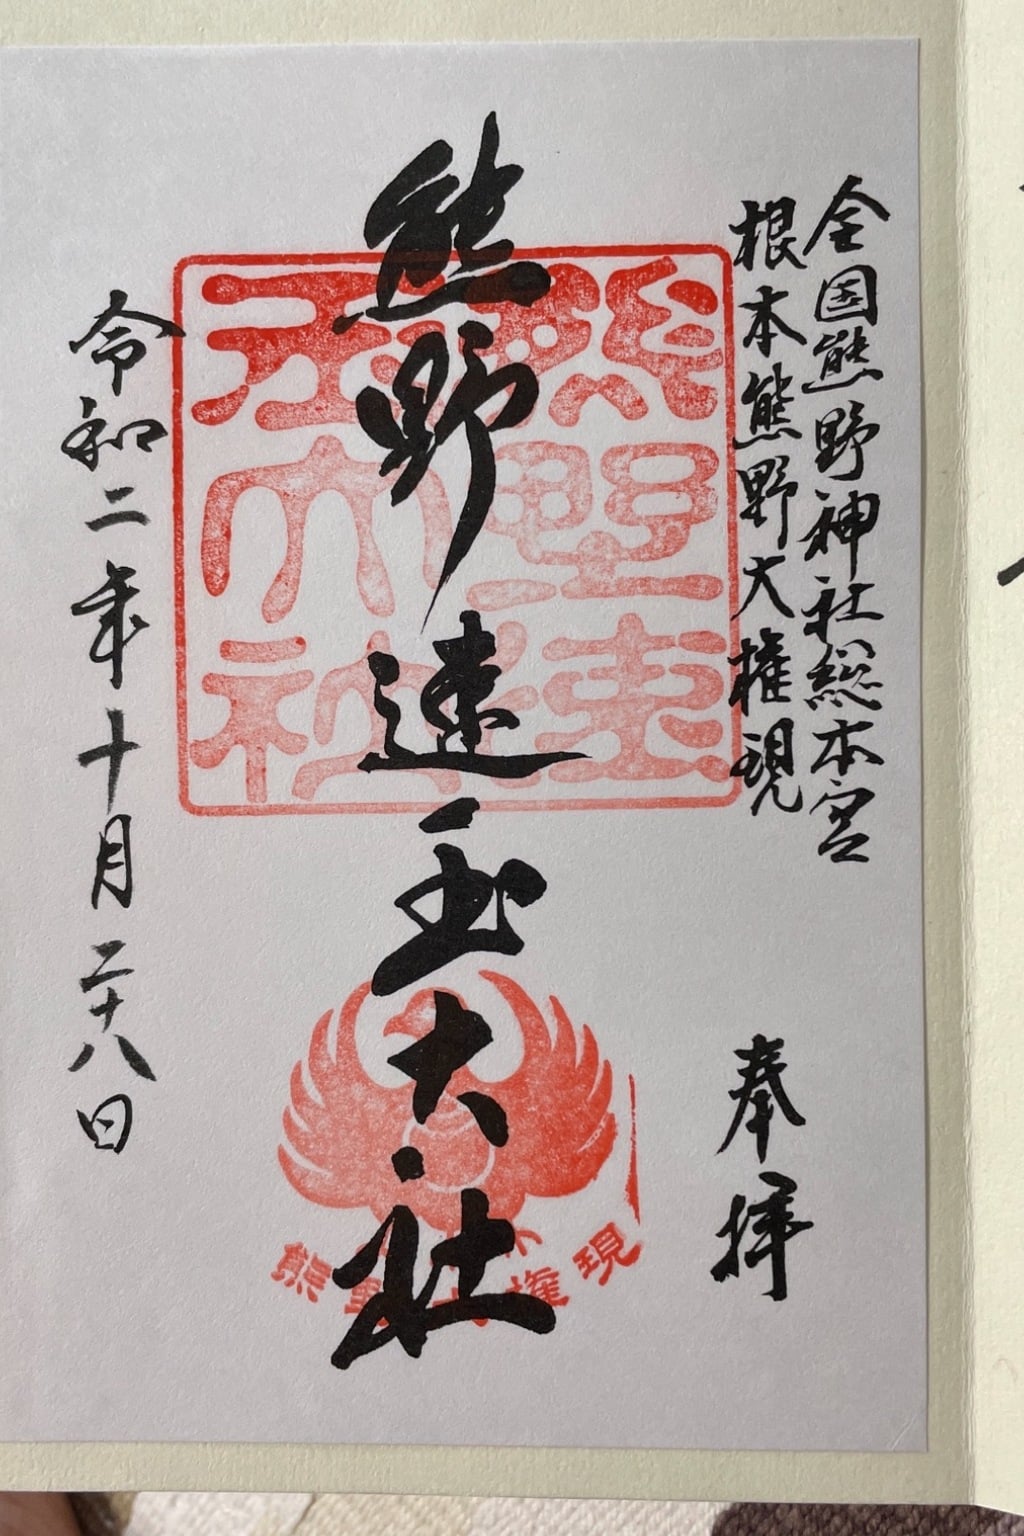 全国熊野神社総本宮
根本熊野大権現
奉拝
熊野速玉大社
熊野速玉大社
熊野大権現
令和二年十月二十八日